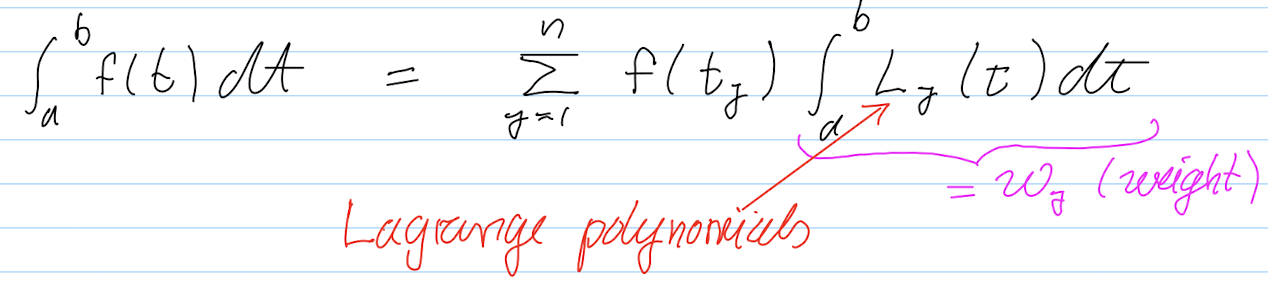 ∫_a^b f(t) dt = ∑_{j=1}^n f(t_j) ∫_a^b L_j(t) dt
= w_j (weight)
Lagrange polynomials